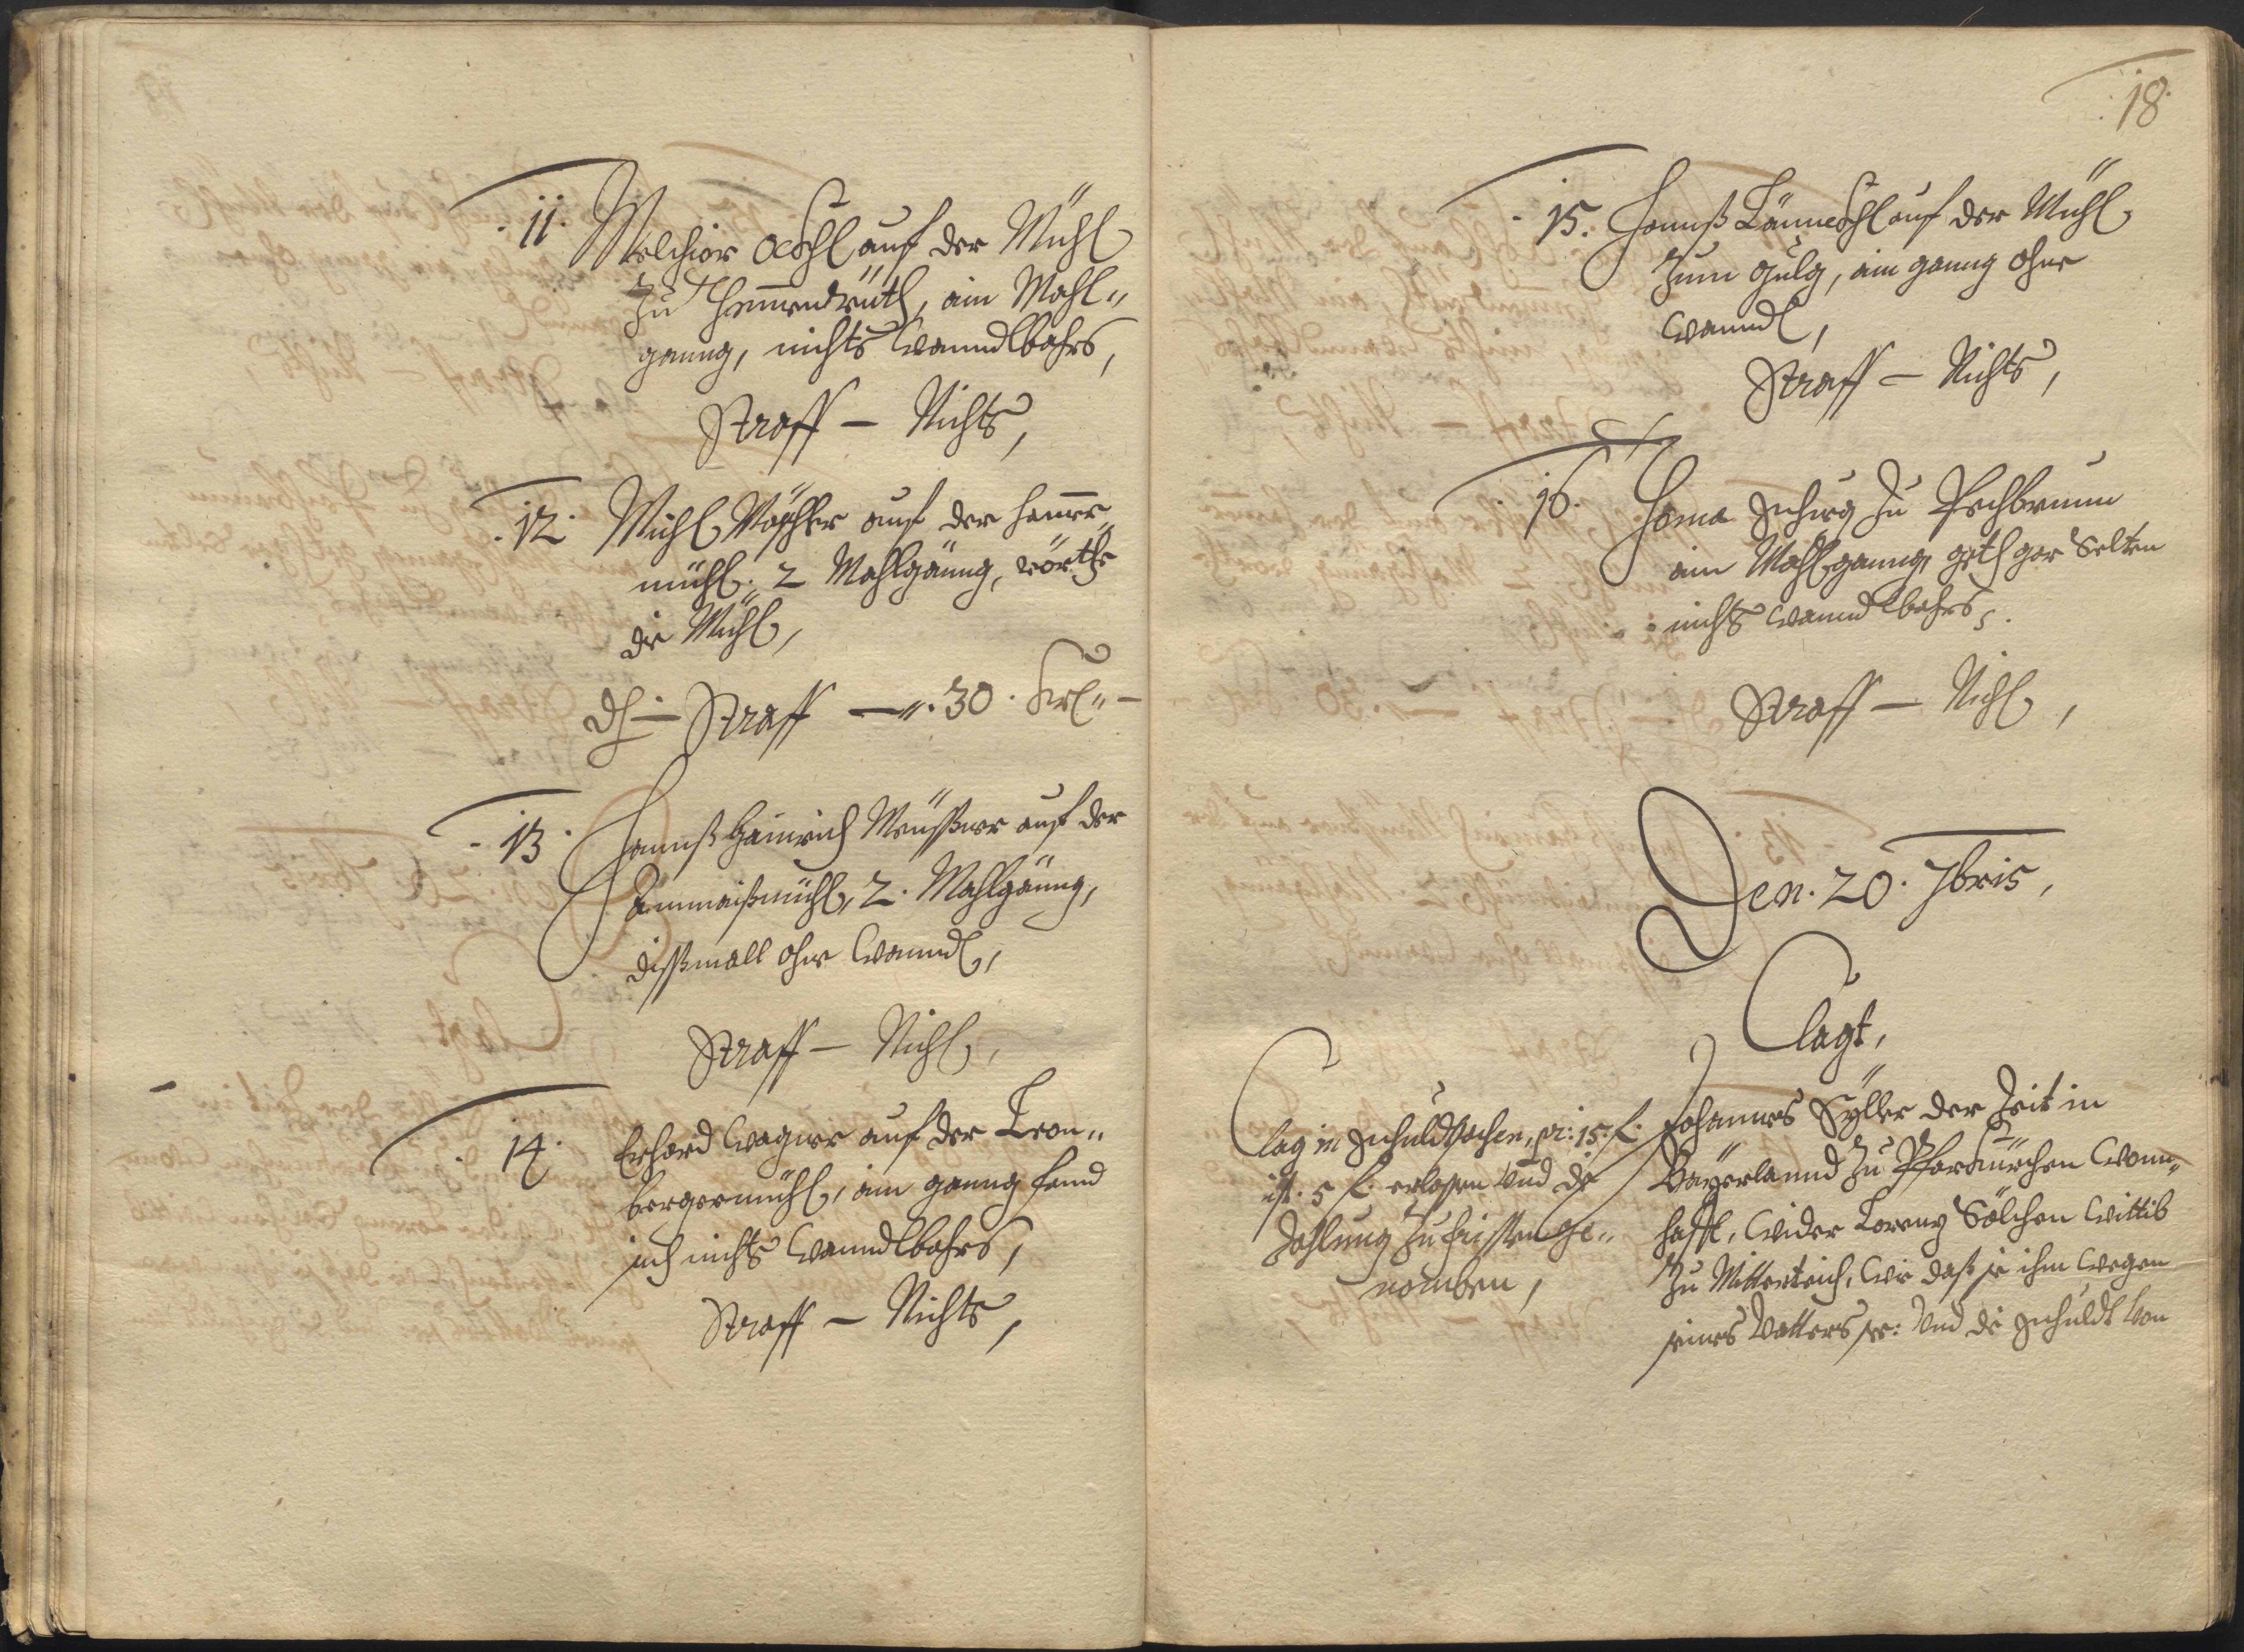 .11. Melchior Öckhl auf der Mühl
zu Themmenreüth, ain Mahl„
ganng, nichts wanndlbahrs,
Straff — Nichts,
.12. Michl Mößler auf der Hammer„
mühl. 2 Mahlgänng,
die Mühl,
dß — Straff —„. 30. krl„ —
.13. Hannß Hainrich Meüßner auf der
Ammaißmühl, 2. Mahlgänng,
dißmall ohne Wanndl,
Straff — Nichts,
.14. Erhard Wagner auf der Leon„
bergermühl, ain ganng fand
sich nichts wanndlbahrs,
Straff — Nichts,
18.
.15. Hannß Länneckhl auf der Mühl
zum Gulg, ain ganng ohne
wanndl,
Straff — Nichts,
.16. Thoma Schug zu Pechbrunn
ain Mahlganng, geth gar selten
nichts wanndlbahrs,
Straff — Nichts,
Den. 20. 7bris,
Clagt,
Clag in Schuldsachen, pr: 15. f.
ist. 5 f. erlassen und die
Zahlung zu fristen ge„
nomben,
Johannes Syller der Zeit in
Bayerlannd zu Pfarrkürchen wonn„
hafft, wider Lorenz Sölchen wittib
zu Mitterteich, wie daß sie ihm wegen
seines Vatters se: und die Schuldt von